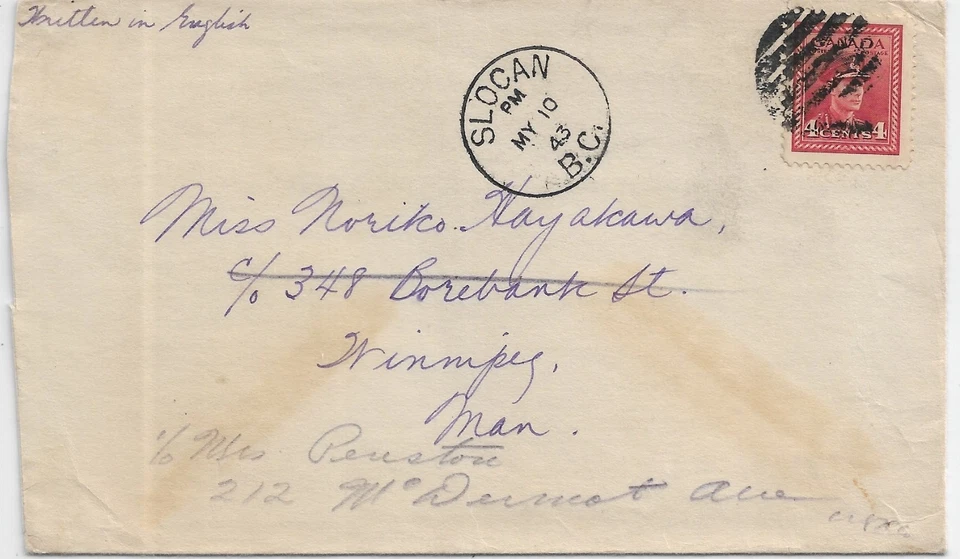 Written in English
SLOCAN
PM
MY 10
43
B.C.
CANADA
4 CENTS 4
Miss Noriko Hayakawa,
c/o 348 Borebank St.
Winnipeg,
Man.
c/o Mrs Penston
212 McDermot Ave